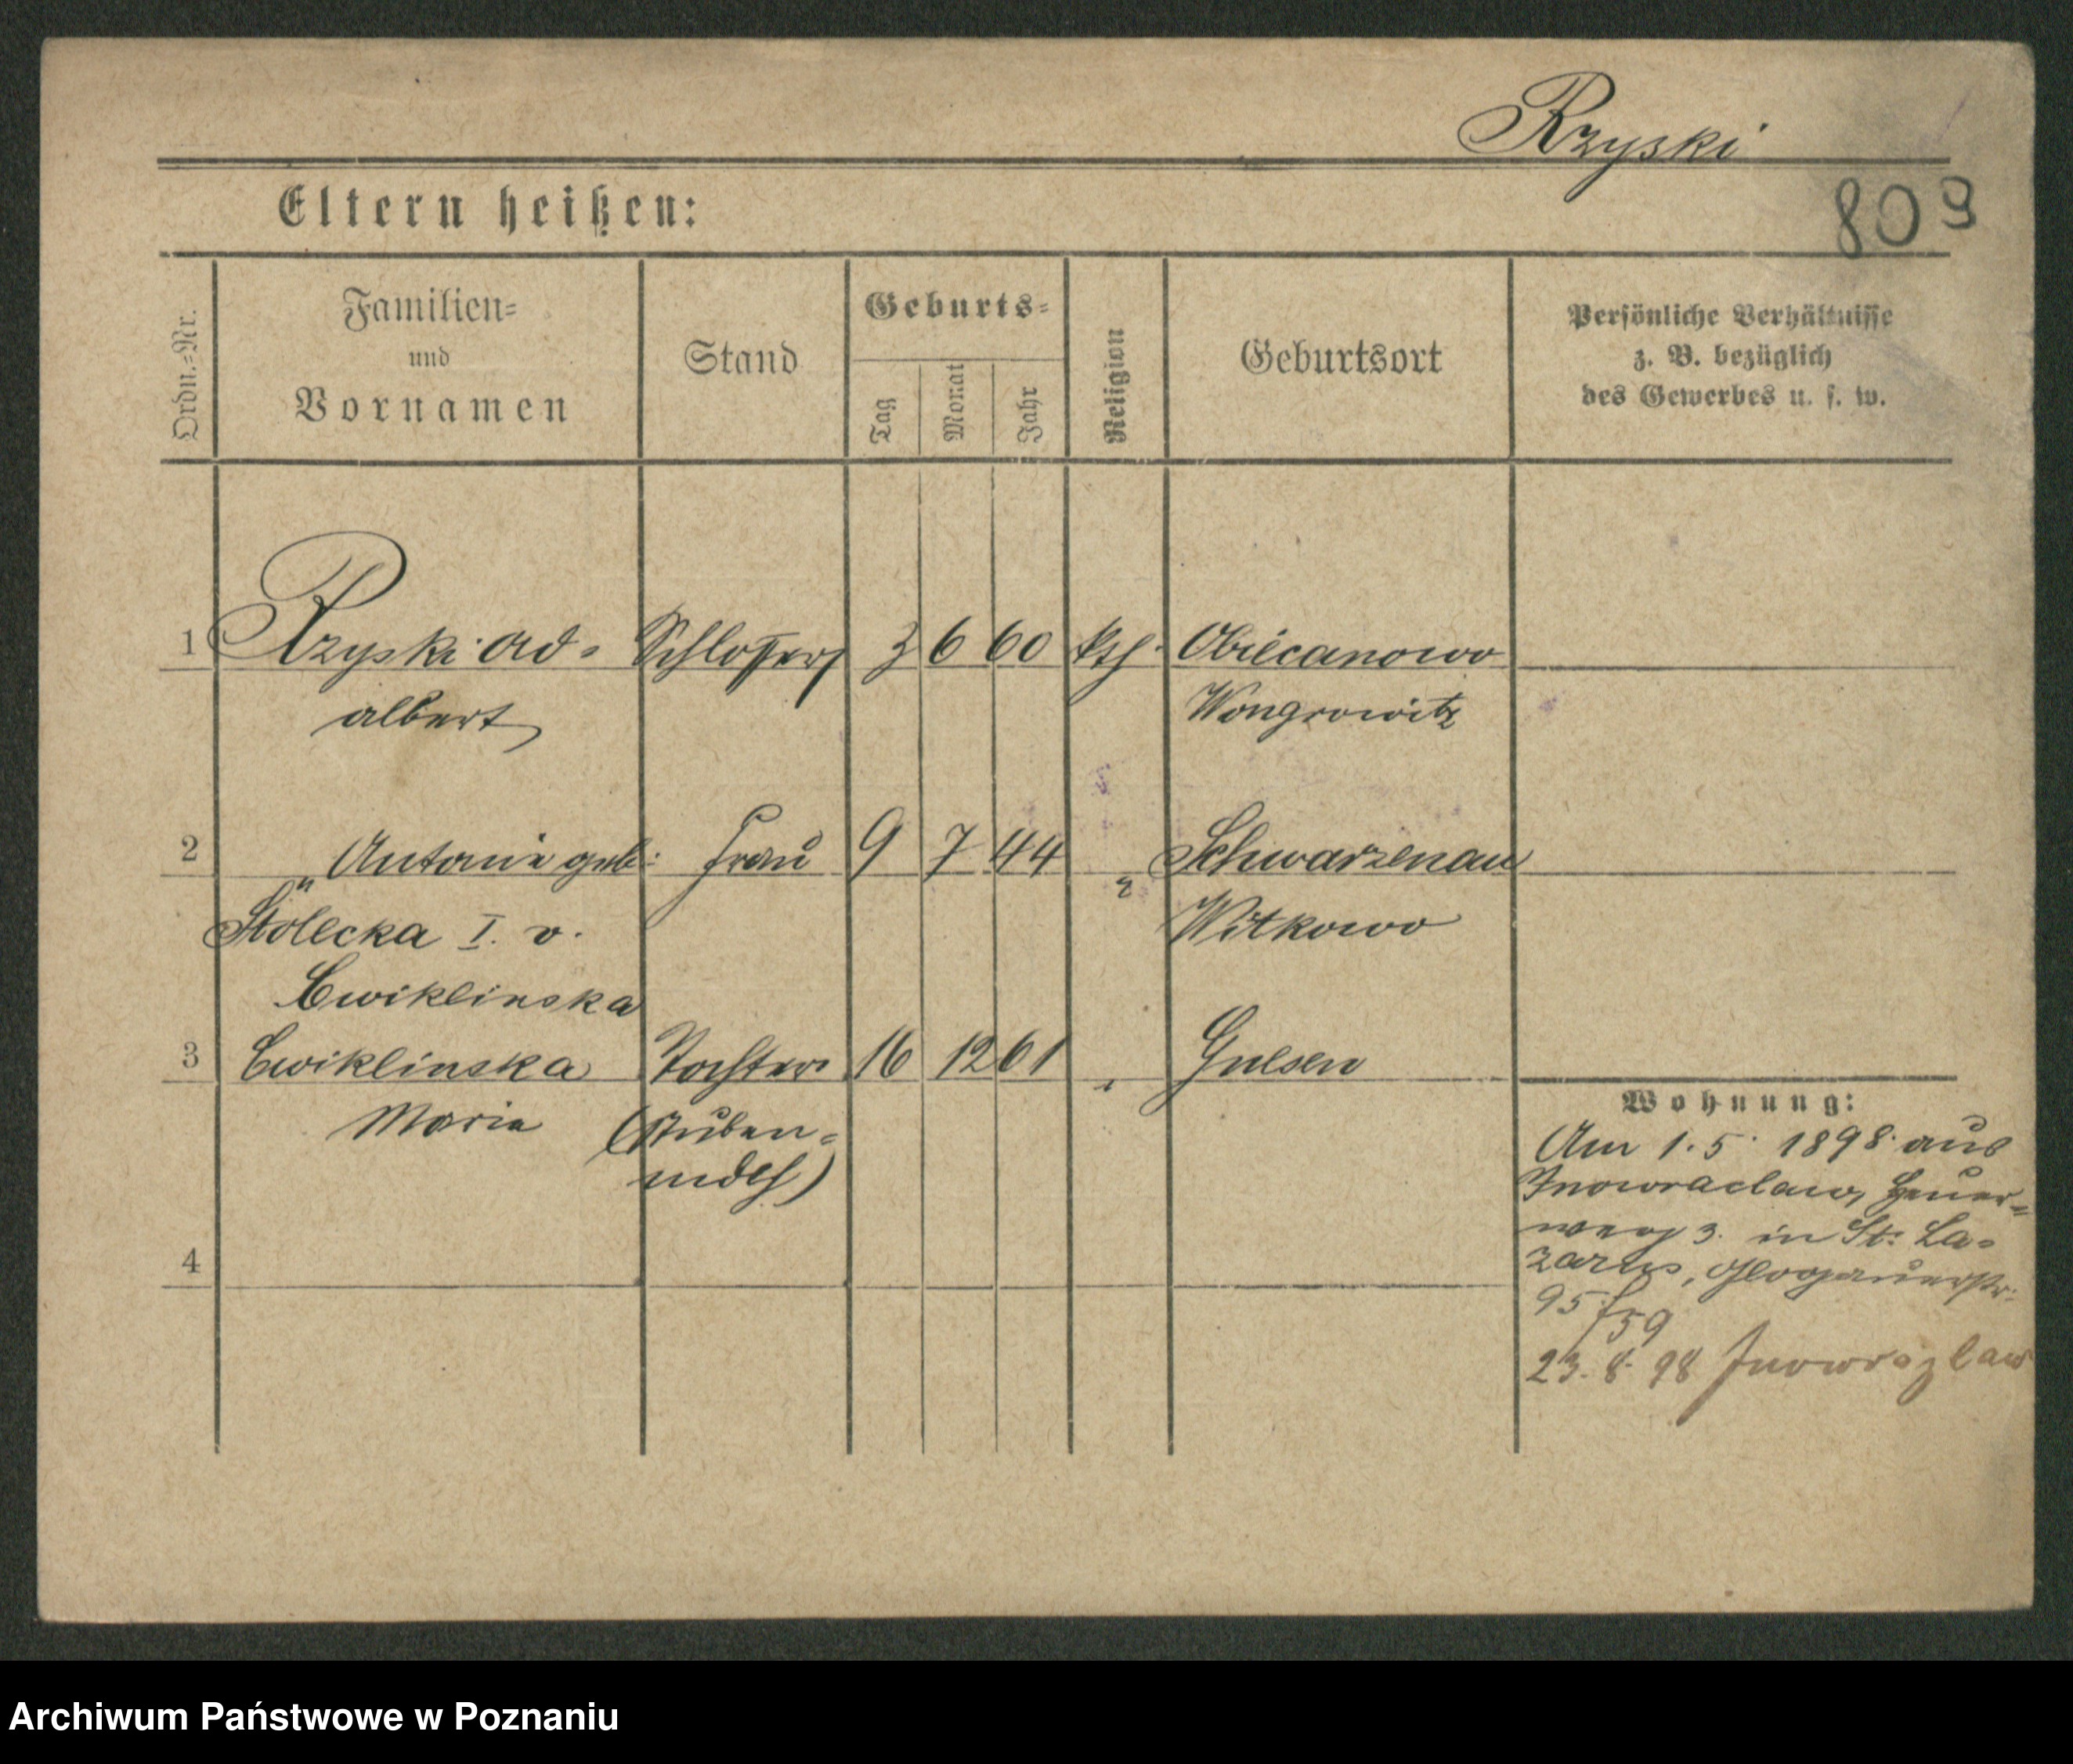 Rzyski
Eltern heißen:
809
Ordn.=Nr.
Familien=
und
Vornamen
Stand
Geburts=
Tag
Monat
Jahr
Religion
Geburtsort
Persönliche Verhältnisse
z. B. bezüglich
des Gewerbes u. s. w.
1 Rzyski Ad= Schlosser 3 6 60 kth. Obiecanowo
albert Wongrowitz
2 " Antonie geb: Frau 9 7 44 " Schwarzenau
Stolecka I. v. Witkowo
Cwiklinska
3 Cwiklinska Tochter 16 12 61 " Gnesen
Maria (Stuben=
mdch)
Wohnung:
Am 1.5. 1898 aus
Inowraclaw,
3. in St: La=
zarus, Glogauerstr:
95 f59
4
23.8.98 Inowrazlaw
Archiwum Państwowe w Poznaniu